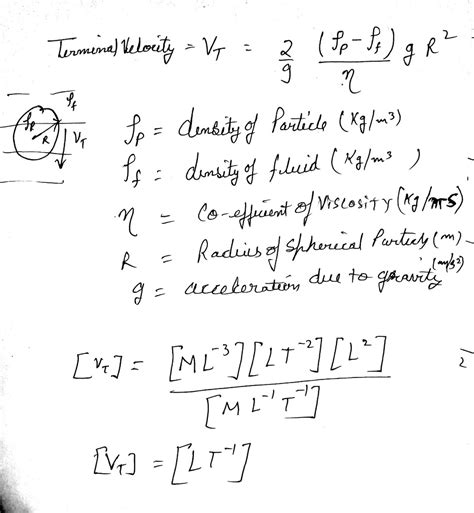 Terminal Velocity = V_T = 2/9 (ρ_p - ρ_f)/η g R²
ρ_f
ρ_p R V_T
ρ_p = density of Particle (Kg/m³)
ρ_f = density of fluid (Kg/m³)
η = Co-efficient of Viscosity (Kg/m-s)
R = Radius of Spherical (m)
g = acceleration due to gravity (m/s²)
[V_T] = [ML⁻³][LT⁻²][L²] / [ML⁻¹T⁻¹]
[V_T] = [LT⁻¹]